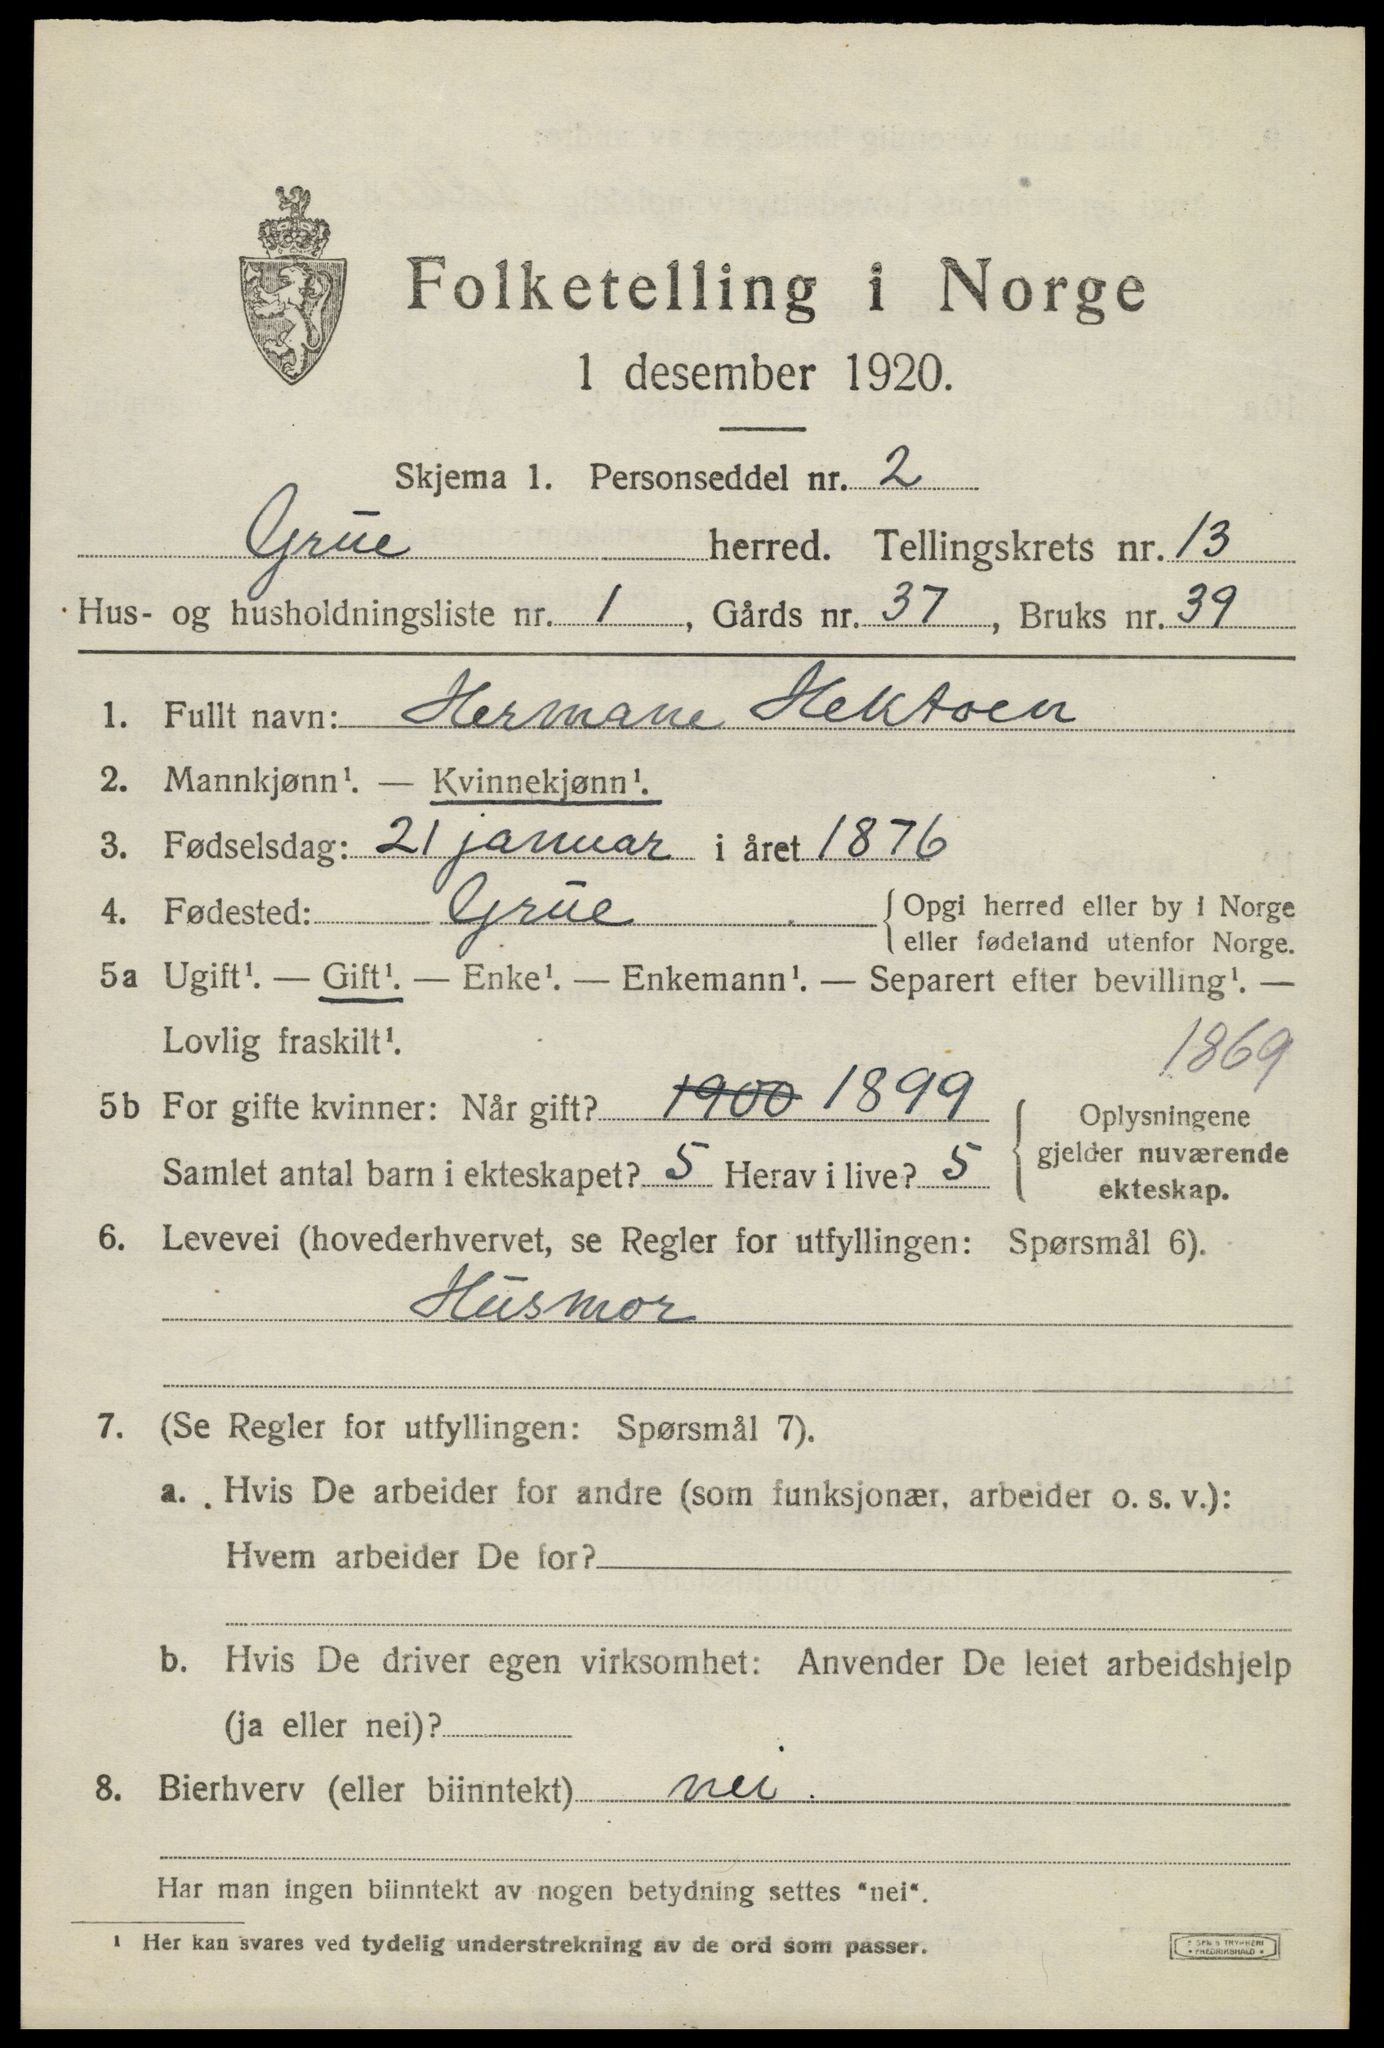 Folketelling i Norge
1 desember 1920.
Skjema 1. Personseddel nr. 2
Grue herred. Tellingskrets nr. 13
Hus- og husholdningsliste nr. 1, Gårds nr. 37, Bruks nr. 39
1. Fullt navn: Hermane Hektoen
2. Mannkjønn¹. — Kvinnekjønn¹.
3. Fødselsdag: 21 januar i året 1876
4. Fødested: Grue { Opgi herred eller by i Norge
eller fødeland utenfor Norge.
5a Ugift¹. — Gift¹. — Enke¹. — Enkemann¹. — Separert efter bevilling¹. —
Lovlig fraskilt¹. 1869
5b For gifte kvinner: Når gift? 1900 1899
Samlet antal barn i ekteskapet? 5 Herav i live? 5
Oplysningene
gjelder nuværende
ekteskap.
6. Levevei (hovederhvervet, se Regler for utfyllingen: Spørsmål 6).
Husmor
7. (Se Regler for utfyllingen: Spørsmål 7).
a. Hvis De arbeider for andre (som funksjonær, arbeider o. s. v.):
Hvem arbeider De for?
b. Hvis De driver egen virksomhet: Anvender De leiet arbeidshjelp
(ja eller nei)?
8. Bierhverv (eller biinntekt) nei.
Har man ingen biinntekt av nogen betydning settes "nei".
¹ Her kan svares ved tydelig understrekning av de ord som passer.
TRYKKERI
FREDRIKSHALD